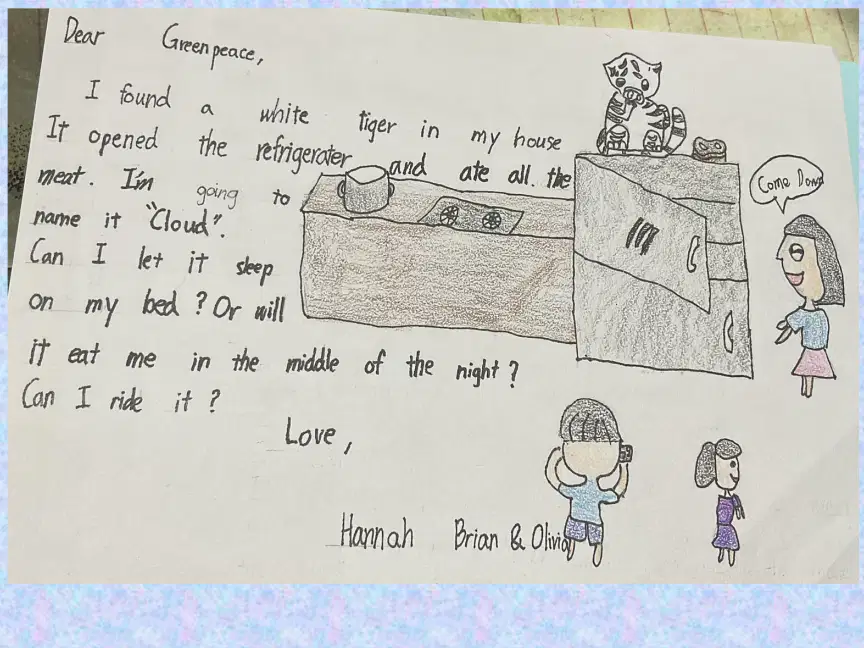 Dear Greenpeace,
I found a white tiger in my house
It opened the refrigerater and ate all. the
meat. I'm going to
name it "Cloud".
Can I let it sleep
on my bed? Or will
it eat me in the middle of the night?
Can I ride it?
Love,
Hannah Brian & Olivia
Come Down